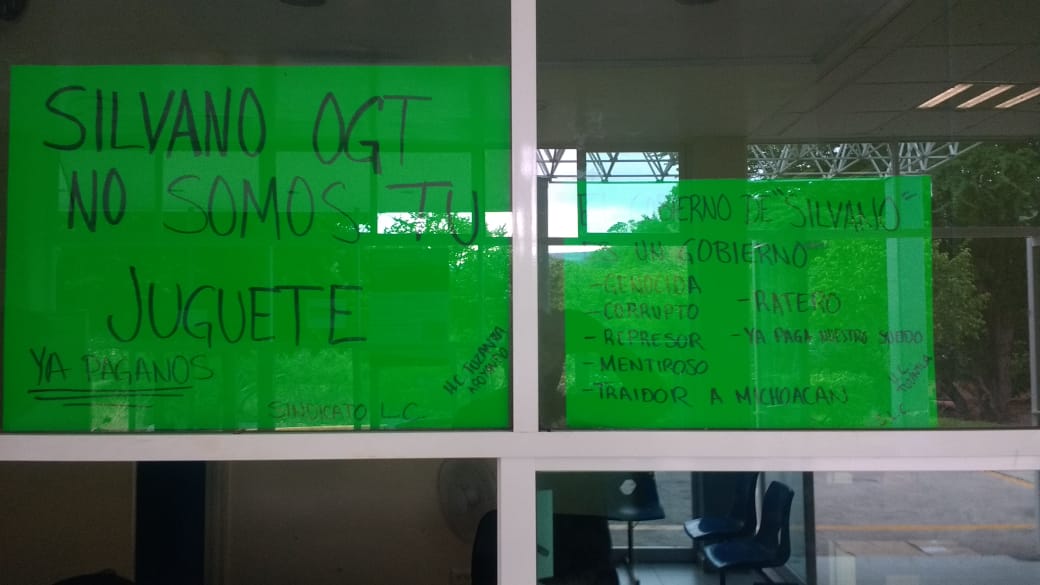 SILVANO OGT
NO SOMOS TU
JUGUETE
YA PAGANOS
SINDICATO L.C.
H.C TUZANTLA
APOYANDO
GOBIERNO DE "SILVANO"
UN GOBIERNO
-GENOCIDA
-CORRUPTO
-REPRESOR
-MENTIROSO
-TRAIDOR A MICHOACAN
-RATERO
-YA PAGA NUESTRO SUELDO
L.C.